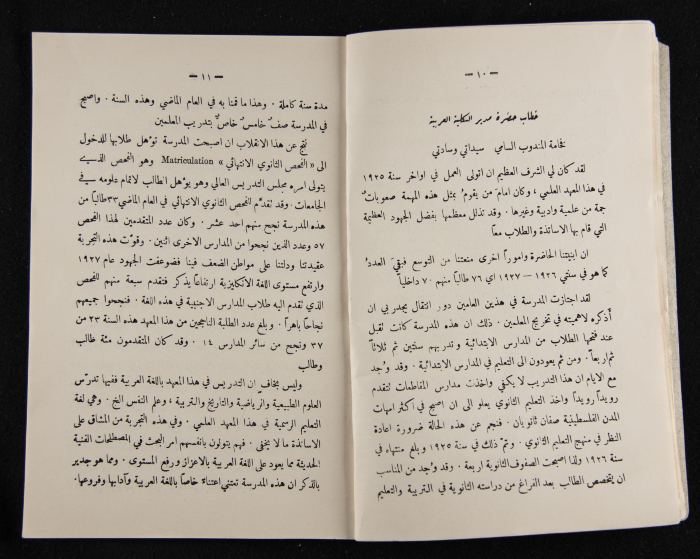 — ١٠ —
خطاب حضرة مدير الكلية العربية
فخامة المندوب السامي سيداتي وسادتي
لقد كان لي الشرف العظيم ان اتولى العمل في اواخر سنة ١٩٢٥
في هذا المعهد العلمي ، وكان امامَ من يقومُ بمثل هذه المهمة صعوباتٌ
جمة من علمية وادبية وغيرها . وقد تذلل معظمها بفضل الجهود العظيمة
التي قام بها الاساتذة والطلاب معاً
ان ابنيتنا الحاضرة واموراً اخرى منعتنا من التوسع فبقيَ العددُ
كما هو في سنتي ١٩٢٦ — ١٩٢٧ اي ٧٦ طالباً منهم ٧٠ داخلياً
لقد اجتازت المدرسة في هذين العامين دور انتقال يجدر بي ان
أذكره لاهميته في تخريج المعلمين . ذلك ان هذه المدرسة كانت تقبل
عند فتحها الطلاب من المدارس الابتدائية وتدربهم سنتين ثم ثلاثاً
ثم اربعاً . ومن ثم يعودون الى التعليم في المدارس الابتدائية . وقد وُجد
مع الايام ان هذا التدريب لا يكفي واخذت مدارس المقاطعات تتقدم
رويداً رويداً واخذ التعليم الثانوي يعلو الى ان اصبح في اكثر امهات
المدن الفلسطينية صفان ثانويان . فنجم عن هذه الحالة ضرورة اعادة
النظر في منهج التعليم الثانوي . وتمّ ذلك في سنة ١٩٢٥ وبلغ منتهاه في
سنة ١٩٢٦ ولذا اصبحت الصفوف الثانوية اربعة . وقد وُجد من المناسب
ان يتخصص الطالب بعد الفراغ من دراسته الثانوية في التربية والتعليم
— ١١ —
مدة سنة كاملة . وهذا ما قمنا به في العام الماضي وهذه السنة . واصبح
في المدرسة صفٌ خامسٌ خاصٌ بتدريب المعلمين
نتج عن هذا الانقلاب ان اصبحت المدرسة تؤهل طلابها للدخول
الى « الفحص الثانوي الانتهائي » Matriculation وهو الفحص الذي
يتولى امره مجلس التدريس العالي وهو يؤهل الطالب لاتمام علومه في
الجامعات . وقد تقدّم للفحص الثانوي الانتهائي في العام الماضي ٣٣ طالباً من
هذه المدرسة نجح منهم احد عشر . وكان عدد المتقدمين لهذا الفحص
٥٧ وعدد الذين نجحوا من المدارس الاخرى اثنين . وقوّت هذه التجربة
عقيدتنا ودلتنا على مواطن الضعف فينا فضوعفت الجهود عام ١٩٢٧
وارتفع مستوى اللغة الانكليزية ارتفاعاً يذكر فتقدم سبعة منهم للفحص
الذي تقدم اليه طلاب المدارس الاجنبية في هذه اللغة . فنجحوا جميعهم
نجاحاً باهراً . وبلغ عدد الطلبة الناجحين من هذا المعهد هذه السنة ٢٣ من
٣٧ ونجح من سائر المدارس ١٤ . وقد كان المتقدمون مئة طالب
وطالب
وليس بخاف ان التدريس في هذا المعهد باللغة العربية ففيها تدرّس
العلوم الطبيعية والرياضية والتاريخ والتربية ، وعلم النفس الخ . وهي لغة
التعليم الرسمية في هذا المعهد العلمي . وفي هذه التجربة من المشاق على
الاساتذة ما لا يخفى . فهم يتولون بانفسهم امر البحث في المصطلحات الفنية
الحديثة مما يعود على اللغة العربية بالاعزاز ورفع المستوى . ومما هو جدير
بالذكر ان هذه المدرسة تعتني اعتناءً خاصاً باللغة العربية وآدابها وفروعها .